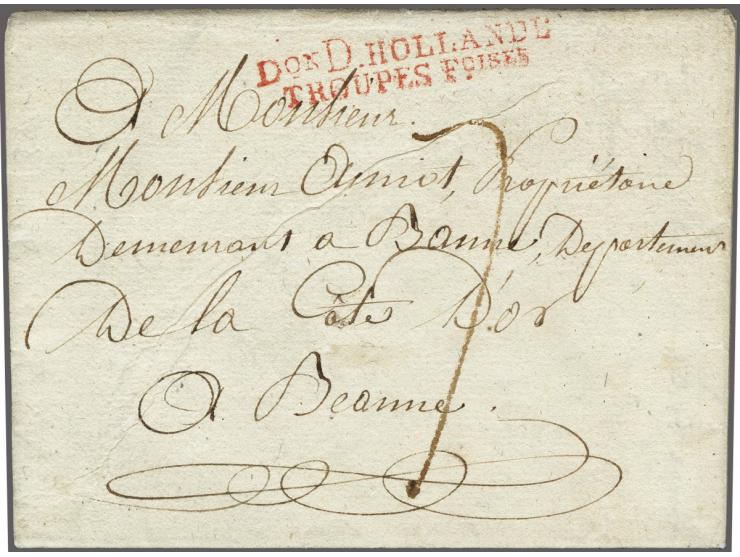 DON D. HOLLANDE
TROUPES FOISES
A Monsieur.
Monsieur Amiot, Propriétaire
Demeurant a Baune, Departement
De la Côte D'or
A Beaune.
7